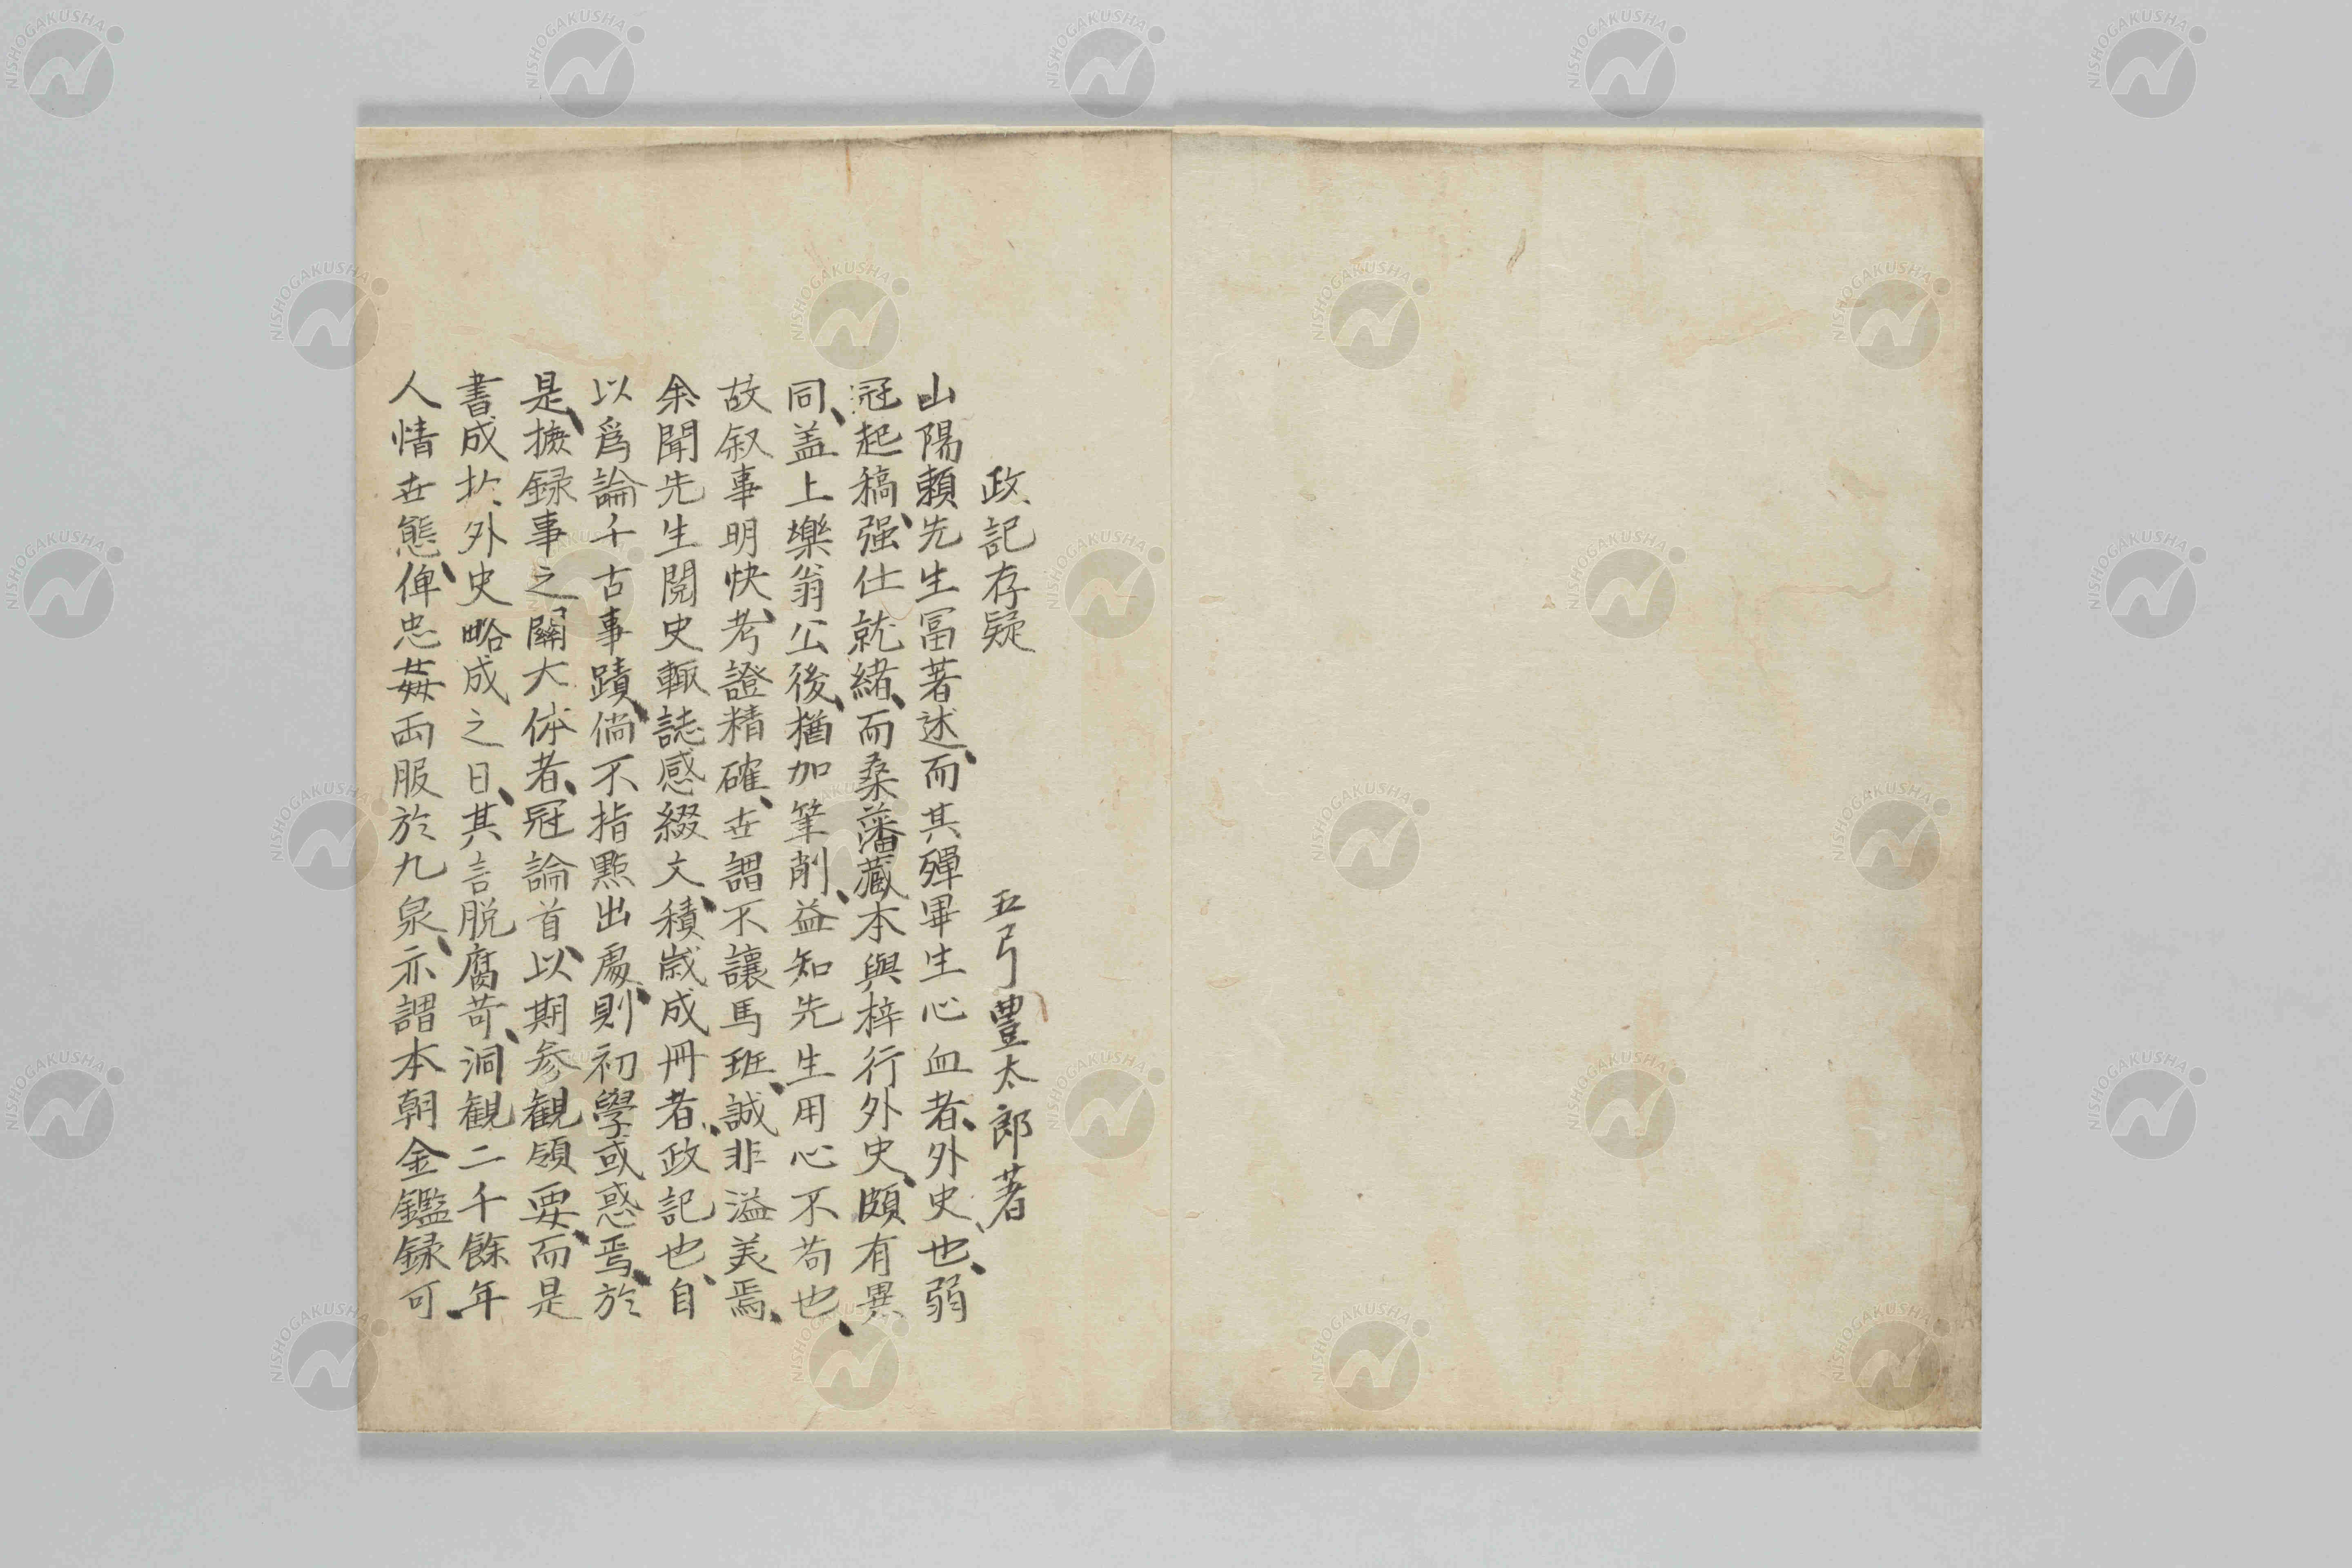 政記存疑
五弓豊太郎著
山陽頼先生冨著述、而其殫畢生心血者、外史也、弱
冠起稿、强仕就緒、而桑藩藏本與梓行外史、頗有異
同、盖上樂翁公後、猶加筆削、益知先生用心不苟也、
故叙事明快、考證精確、世謂不讓馬班、誠非溢美焉、
余聞先生閲史輙誌感綴文、積歳成冊者、政記也、自
以爲論千古事蹟、倘不指點出處、則初學或惑焉、於
是、摭録事之關大体者、冠論首、以期参観領要、而是
書成於外史略成之日、其言脱腐苛、洞観二千餘年
人情世態、俾忠姦両服於九泉、亦謂本朝金鑑録可、
NISHOGAKUSHA